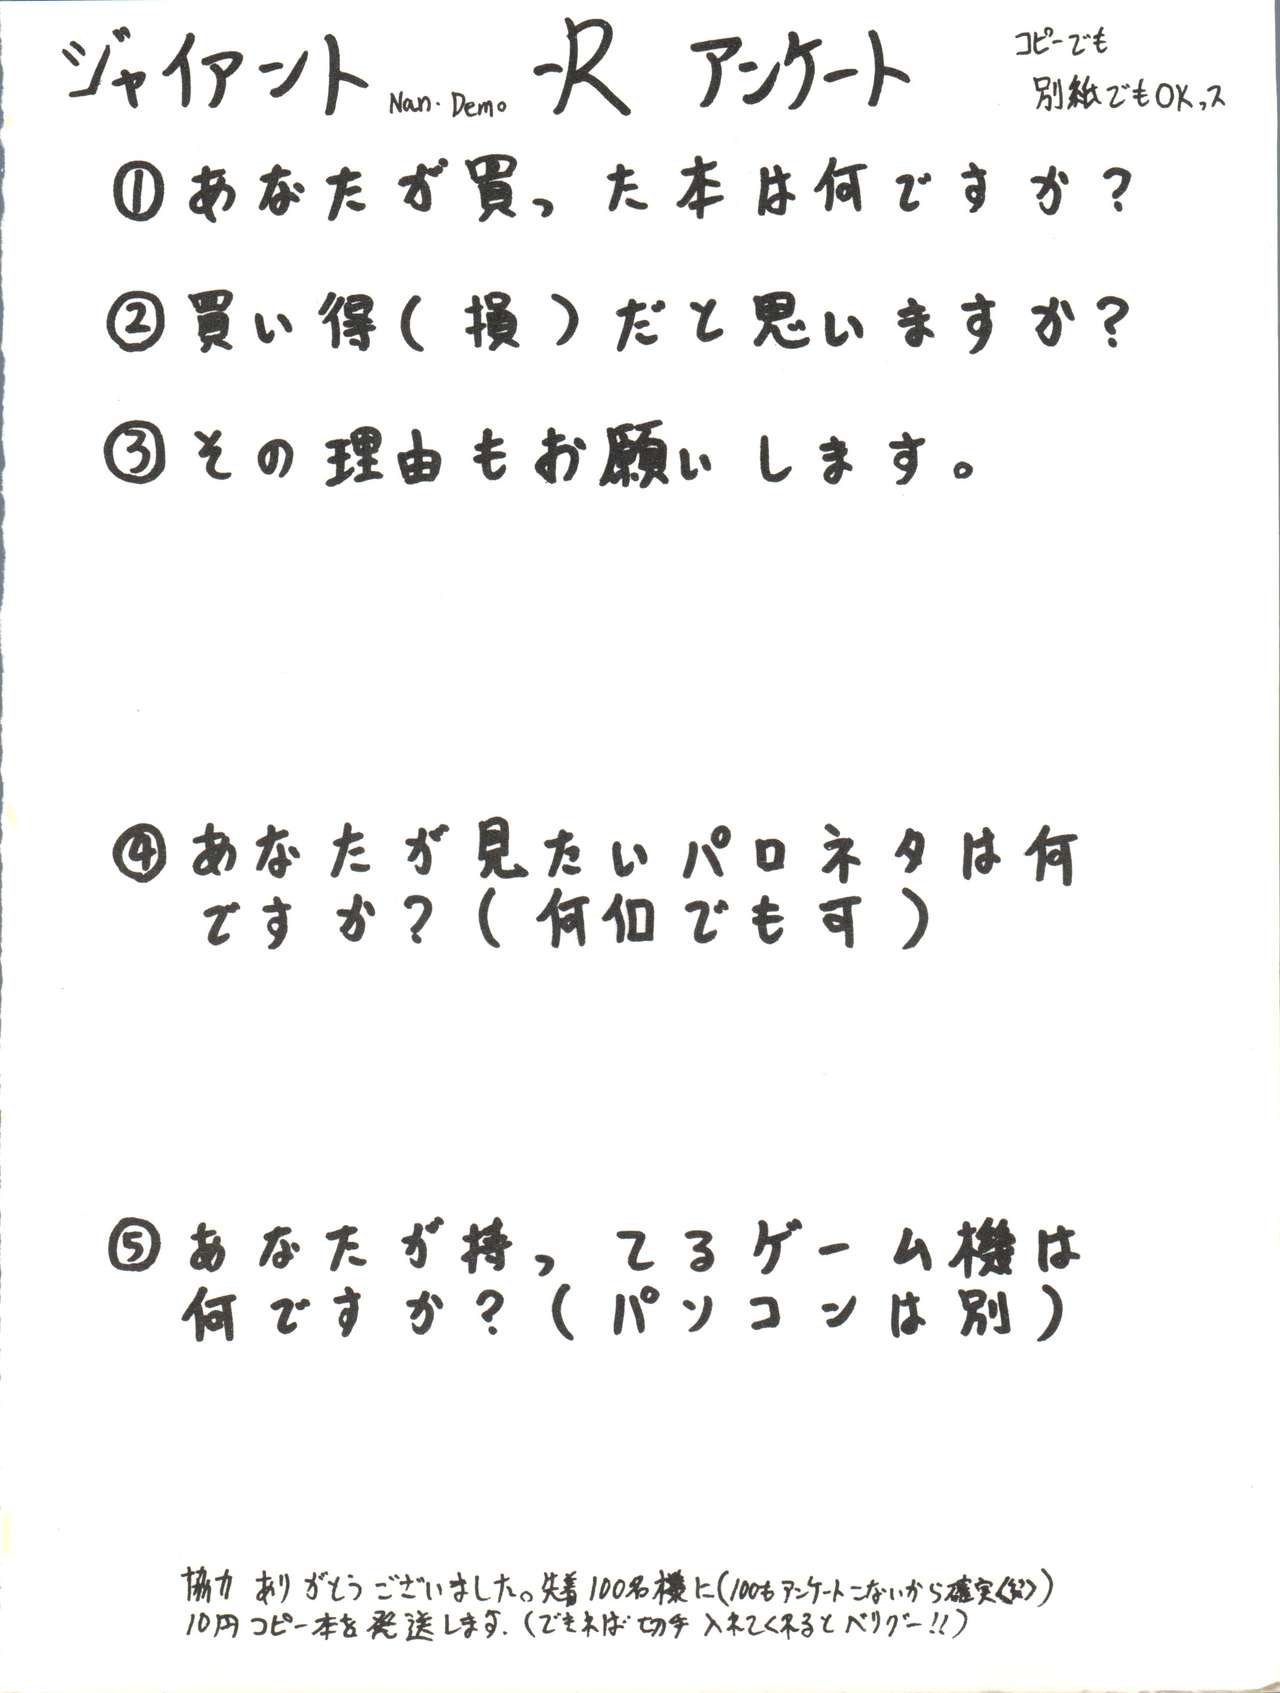 ジャイアント Nan・Demo -R アンケート
コピーでも
別紙でもOKっス
① あなたが買った本は何ですか?
② 買い得(損)だと思いますか?
③ その理由もお願いします。
④ あなたが見たいパロネタは何
ですか?(何個でも可)
⑤ あなたが持ってるゲーム機は
何ですか?(パソコンは別)
協力ありがとうございました。先着100名様に(100もアンケートこないから確実)
10円コピー本を発送します.(できれば切手入れてくれるとベリグー!!)